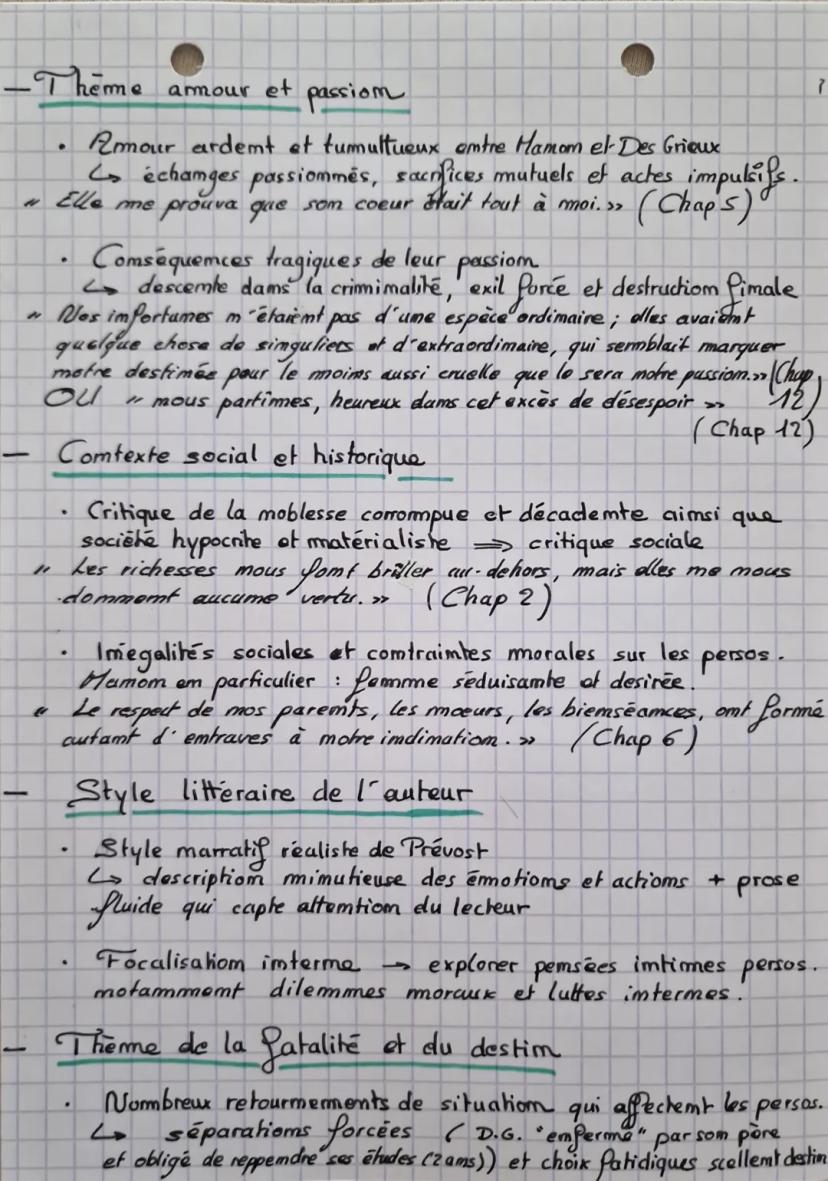 – Thème amour et passion
• Amour ardent et tumultueux entre Manon et Des Grieux
↳ échanges passionnés, sacrifices mutuels et actes impulsifs.
« Elle me prouva que son coeur était tout à moi. » (Chap 5)
• Conséquences tragiques de leur passion
↳ descente dans la criminalité, exil forcé et destruction finale
« Nos infortunes n'étaient pas d'une espèce ordinaire ; elles avaient
quelque chose de singuliers et d'extraordinaire, qui semblait marquer
notre destinée pour le moins aussi cruelle que le sera notre passion. » (Chap
12)
OU « nous partîmes, heureux dans cet excès de désespoir »
(Chap 12)
– Contexte social et historique
• Critique de la noblesse corrompue et décadente ainsi que
société hypocrite et matérialiste ⇒ critique sociale
« Les richesses nous font briller au-dehors, mais elles ne nous
donnent aucune vertu. » (Chap 2)
• Inégalités sociales et contraintes morales sur les persos.
Manon en particulier : femme séduisante et desirée.
« Le respect de nos parents, les moeurs, les bienséances, ont formé
autant d'entraves à notre inclination. » (Chap 6)
– Style littéraire de l'auteur
• Style narratif réaliste de Prévost
↳ description minutieuse des émotions et actions + prose
fluide qui capte attention du lecteur
• Focalisation interne → explorer pensées intimes persos.
notamment dilemmes moraux et luttes internes.
– Thème de la fatalité et du destin
• Nombreux retournements de situation qui affectent les persos.
↳ séparations forcées ( D.G. "enfermé" par son père
et obligé de reppendre ses études (2 ans)) et choix fatidiques scellent destin